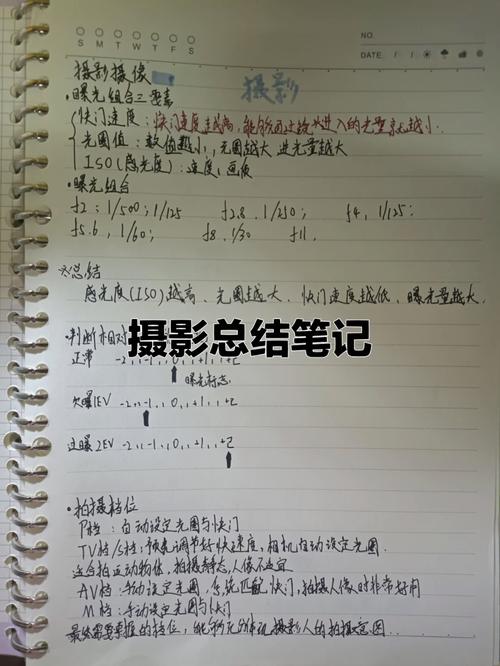 S M T W T F S
NO.
DATE: / /
摄影摄像
摄影
·曝光组合三要素
快门速度：快门速度越高，能够通过 进入的光量就越小.
光圈值：数值越小，光圈越大 进光量越大
ISO(感光度)：速度，画质
·曝光组合
f2；1/500；1/125 f2.8，1/250； f4，1/125；
f5.6，1/60； f8，1/30 f11.
总结
感光度(ISO)越高、光圈越大、快门速度越低、曝光量越大.
·判断相对
摄影总结笔记
正常 -2,,-1,,0,,+1,,+2
曝光标志
欠曝1EV -2,,-1,,0,,+1,,+2
过曝2EV -2,,-1,,0,,+1,,+2
·拍摄档位
P档：自动设定光圈与快门
TV档/S档：预先调节好快门速度，相机自动设定光圈.
适合拍运动物体，拍摄静态人像不适宜
AV档：手动设定光圈，系统匹配快门，拍摄人像时非常好用
M档：手动设定光圈与快门
最终需要掌握的档位，能够充分体现摄影人的拍摄意图...